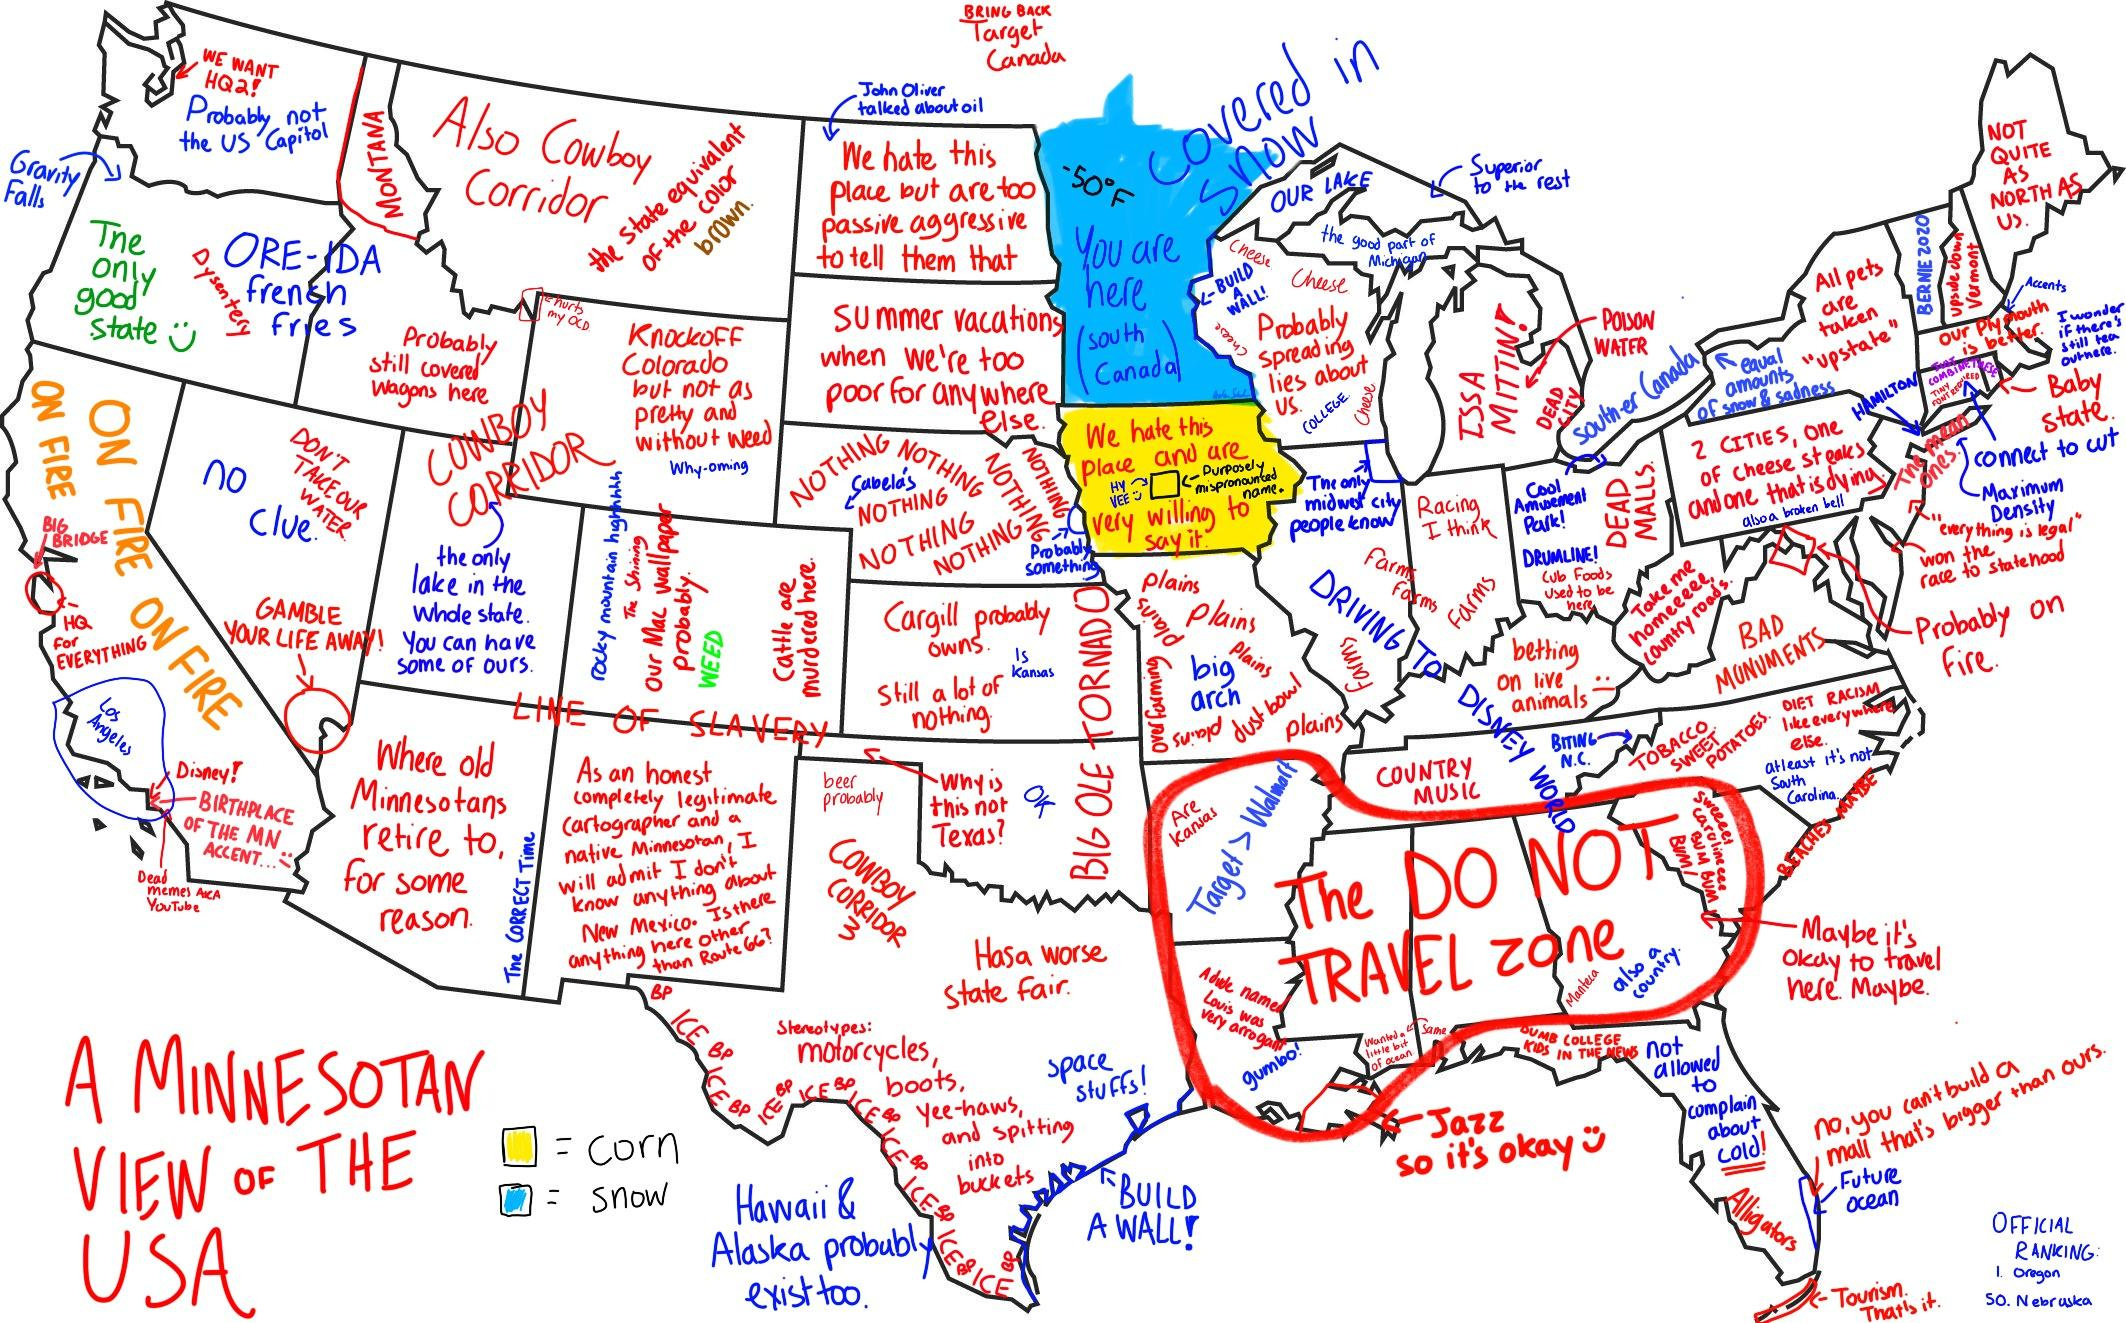 BRING BACK
Target
Canada
WE WANT
HQ2!
Probably not
the US Capitol
Gravity
Falls
The
only
good
state
Dysentery
ORE-IDA
french
fries
MONTANA
Also Cowboy
Corridor
the state equivalent
of the color
brown.
John Oliver
talked about oil
We hate this
place but are too
passive aggressive
to tell them that
-50°F
Covered in
snow
You are
here
(south
Canada)
OUR LAKE
Superior
to the rest
the good part of
Michigan
Cheese
BUILD
A
WALL!
Cheese
Cheese
Probably
spreading
lies about
us.
COLLEGE
Cheese
ISSA
MITTIN!
POISON
WATER
DEAD
CITY
souther Canada
equal
amounts
of snow & sadness
All pets
are
taken
"upstate"
BERNIE 2020
upside down
Vermont
NOT
QUITE
AS
NORTH AS
US.
Accents
our Plymouth
is better.
I wonder
if there's
still tea
out here.
JUST
COMBINE THESE
TINY
FONT REQUIRED
Baby
state.
HAMILTON
connect to cut
The mean
ones.
Maximum
Density
"everything is legal"
won the
race to statehood
Probably on
fire.
2 CITIES, one
of cheese steaks
and one that is dying
also a broken bell
Probably
still covered
wagons here
hurts
my OCD
Knockoff
Colorado
but not as
pretty and
without weed
Why-oming
summer vacations
when we're too
poor for anywhere
else.
We hate this
place and are
HY
VEE
Purposely
mispronounced
name.
very willing to
say it.
NOTHING NOTHING NOTHING
NOTHING
Cabela's
NOTHING
NOTHING
NOTHING
NOTHING
Probably
something
ON FIRE
ON FIRE
ON FIRE
BIG
BRIDGE
HQ
for
EVERYTHING
Los
Angeles
Disney!
BIRTHPLACE
OF THE MN
ACCENT...
Dead
memes AKA
YouTube
no
clue.
DON'T
TAKE OUR
WATER
GAMBLE
YOUR LIFE AWAY!
COWBOY
CORRIDOR
the only
lake in the
whole state.
You can have
some of ours.
rocky mountain highhhhh
The Shining
our Mac wallpaper
probably.
WEED
Cattle are
murdered here.
Cargill probably
owns.
Is
Kansas
Still a lot of
nothing.
BIG OLE TORNADO
plains
plains
plains
plains
big
arch
overfarming
plains
dust bowl
plains
The only
midwest city
people know
DRIVING TO DISNEY WORLD
Racing
I think
Farms
Farms
Farms
Farms
Cool
Amusement
Park!
DRUMLINE!
Cub Foods
used to be
here
DEAD
MALLS.
betting
on live
animals
Take me
homeeeee,
country roads.
BAD
MUNUMENTS
LINE OF SLAVERY
Where old
Minnesotans
retire to,
for some
reason.
The CORRECT Time
As an honest
completely legitimate
cartographer and a
native Minnesotan, I
will admit I don't
know anything about
New Mexico. Is there
anything here other
than Route 66?
beer
probably
Why is
this not
Texas?
OK
COWBOY
CORRIDOR
3
Has a worse
state fair.
Stereotypes:
motorcycles,
boots,
yee-haws,
and spitting
into
buckets
space
stuffs!
BP
ICE
BP
ICE
BP
ICE
BP
ICE
BP
ICE
BP
ICE
BP
ICE
BP
ICE
BP
ICE
BP
DAM
BUILD
A WALL!
COUNTRY
MUSIC
BITING
N.C.
TOBACCO.
SWEET
POTATOES.
DIET RACISM
like everywhere
else.
atleast it's not
South
Carolina.
BEACHES MAYBE
sweeeet
carolineeee
BUM BUM
BUM!
Are
Kansas
Target > Walmart
The DO NOT
TRAVEL zone
A dude named
Louis was
very arrogant
gumbo!
Wanted a
little bit
of ocean
Same
Manteca
also a
country.
Maybe it's
okay to travel
here. Maybe.
Jazz
so it's okay
DUMB COLLEGE
KIDS IN THE NEWS
not
allowed
to
complain
about
cold!
Alligators
no, you can't build a
mall that's bigger than ours.
Future
ocean
Tourism.
That's it.
A MINNESOTAN
VIEW OF THE
USA
= corn
= snow
Hawaii &
Alaska probably
exist too.
OFFICIAL
RANKING:
1. Oregon
50. Nebraska